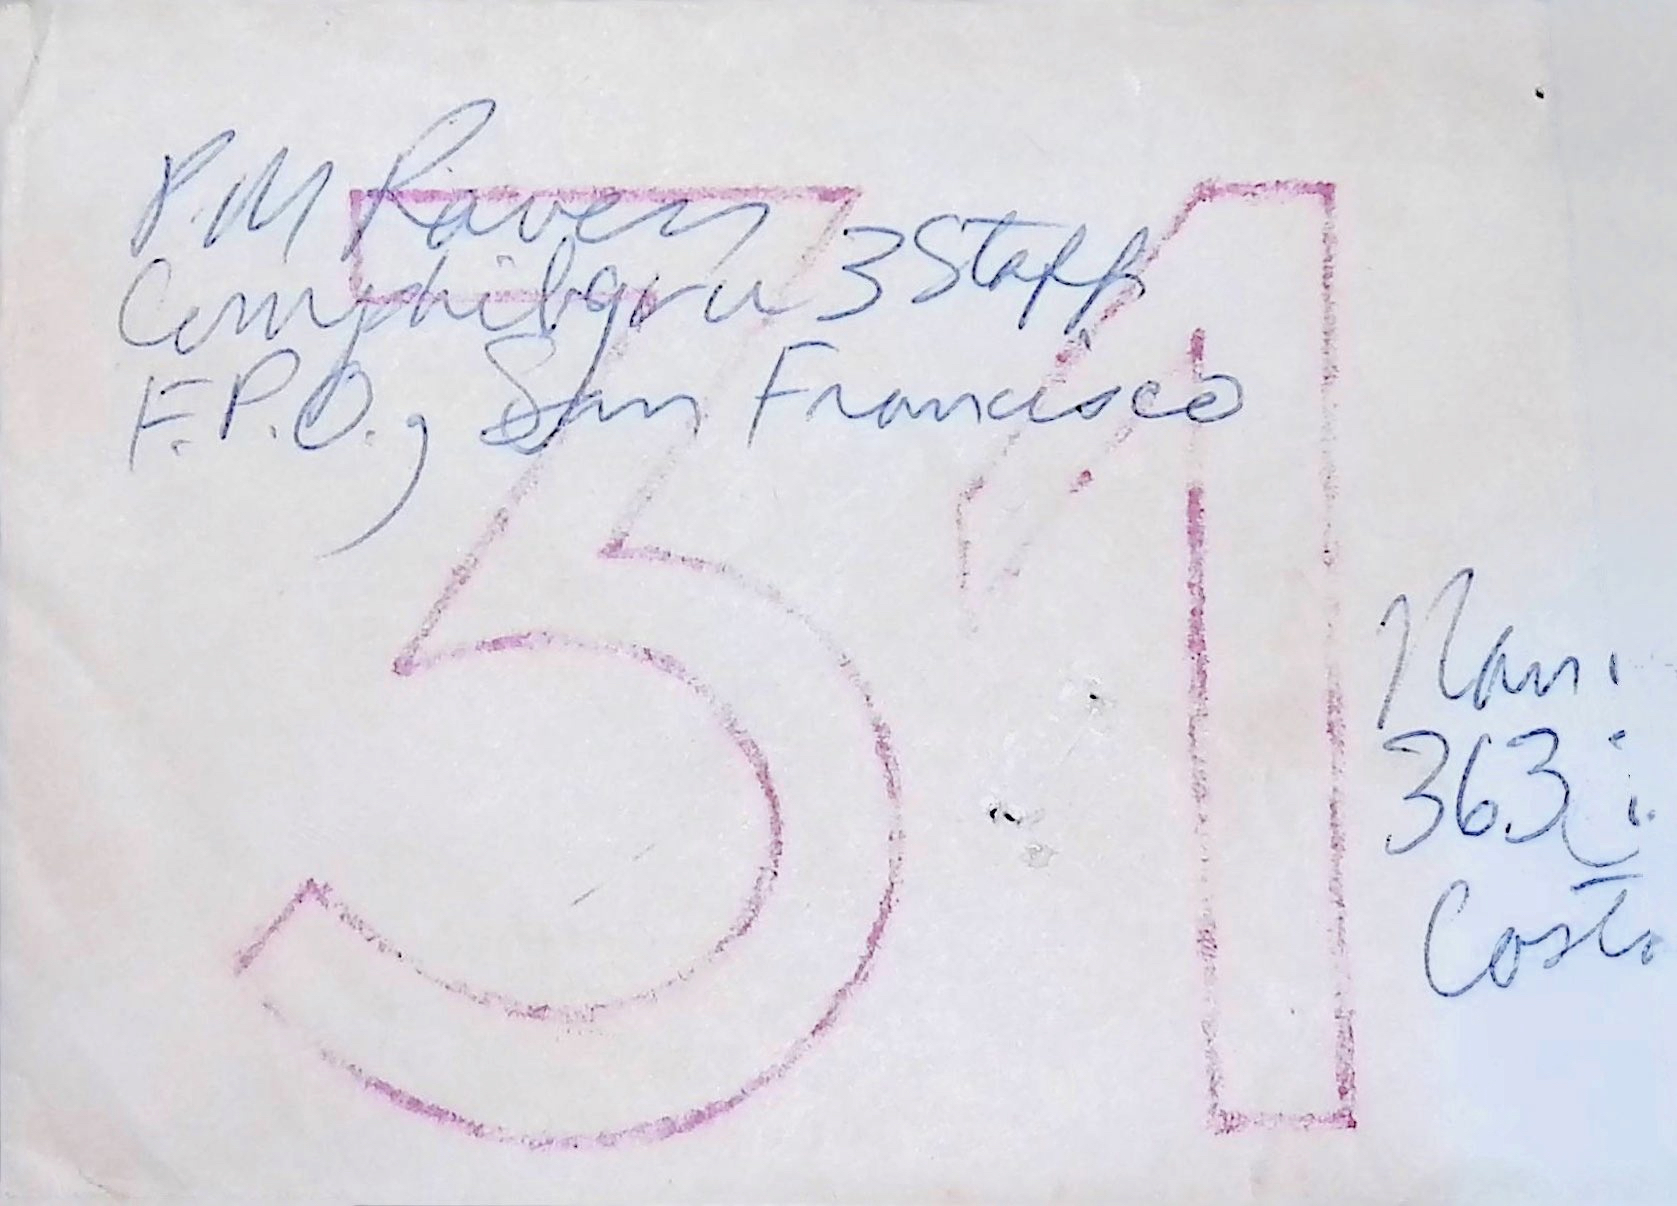 P.M Raven
Comphibgru 3 Staff
F.P.O., San Francisco
31
363